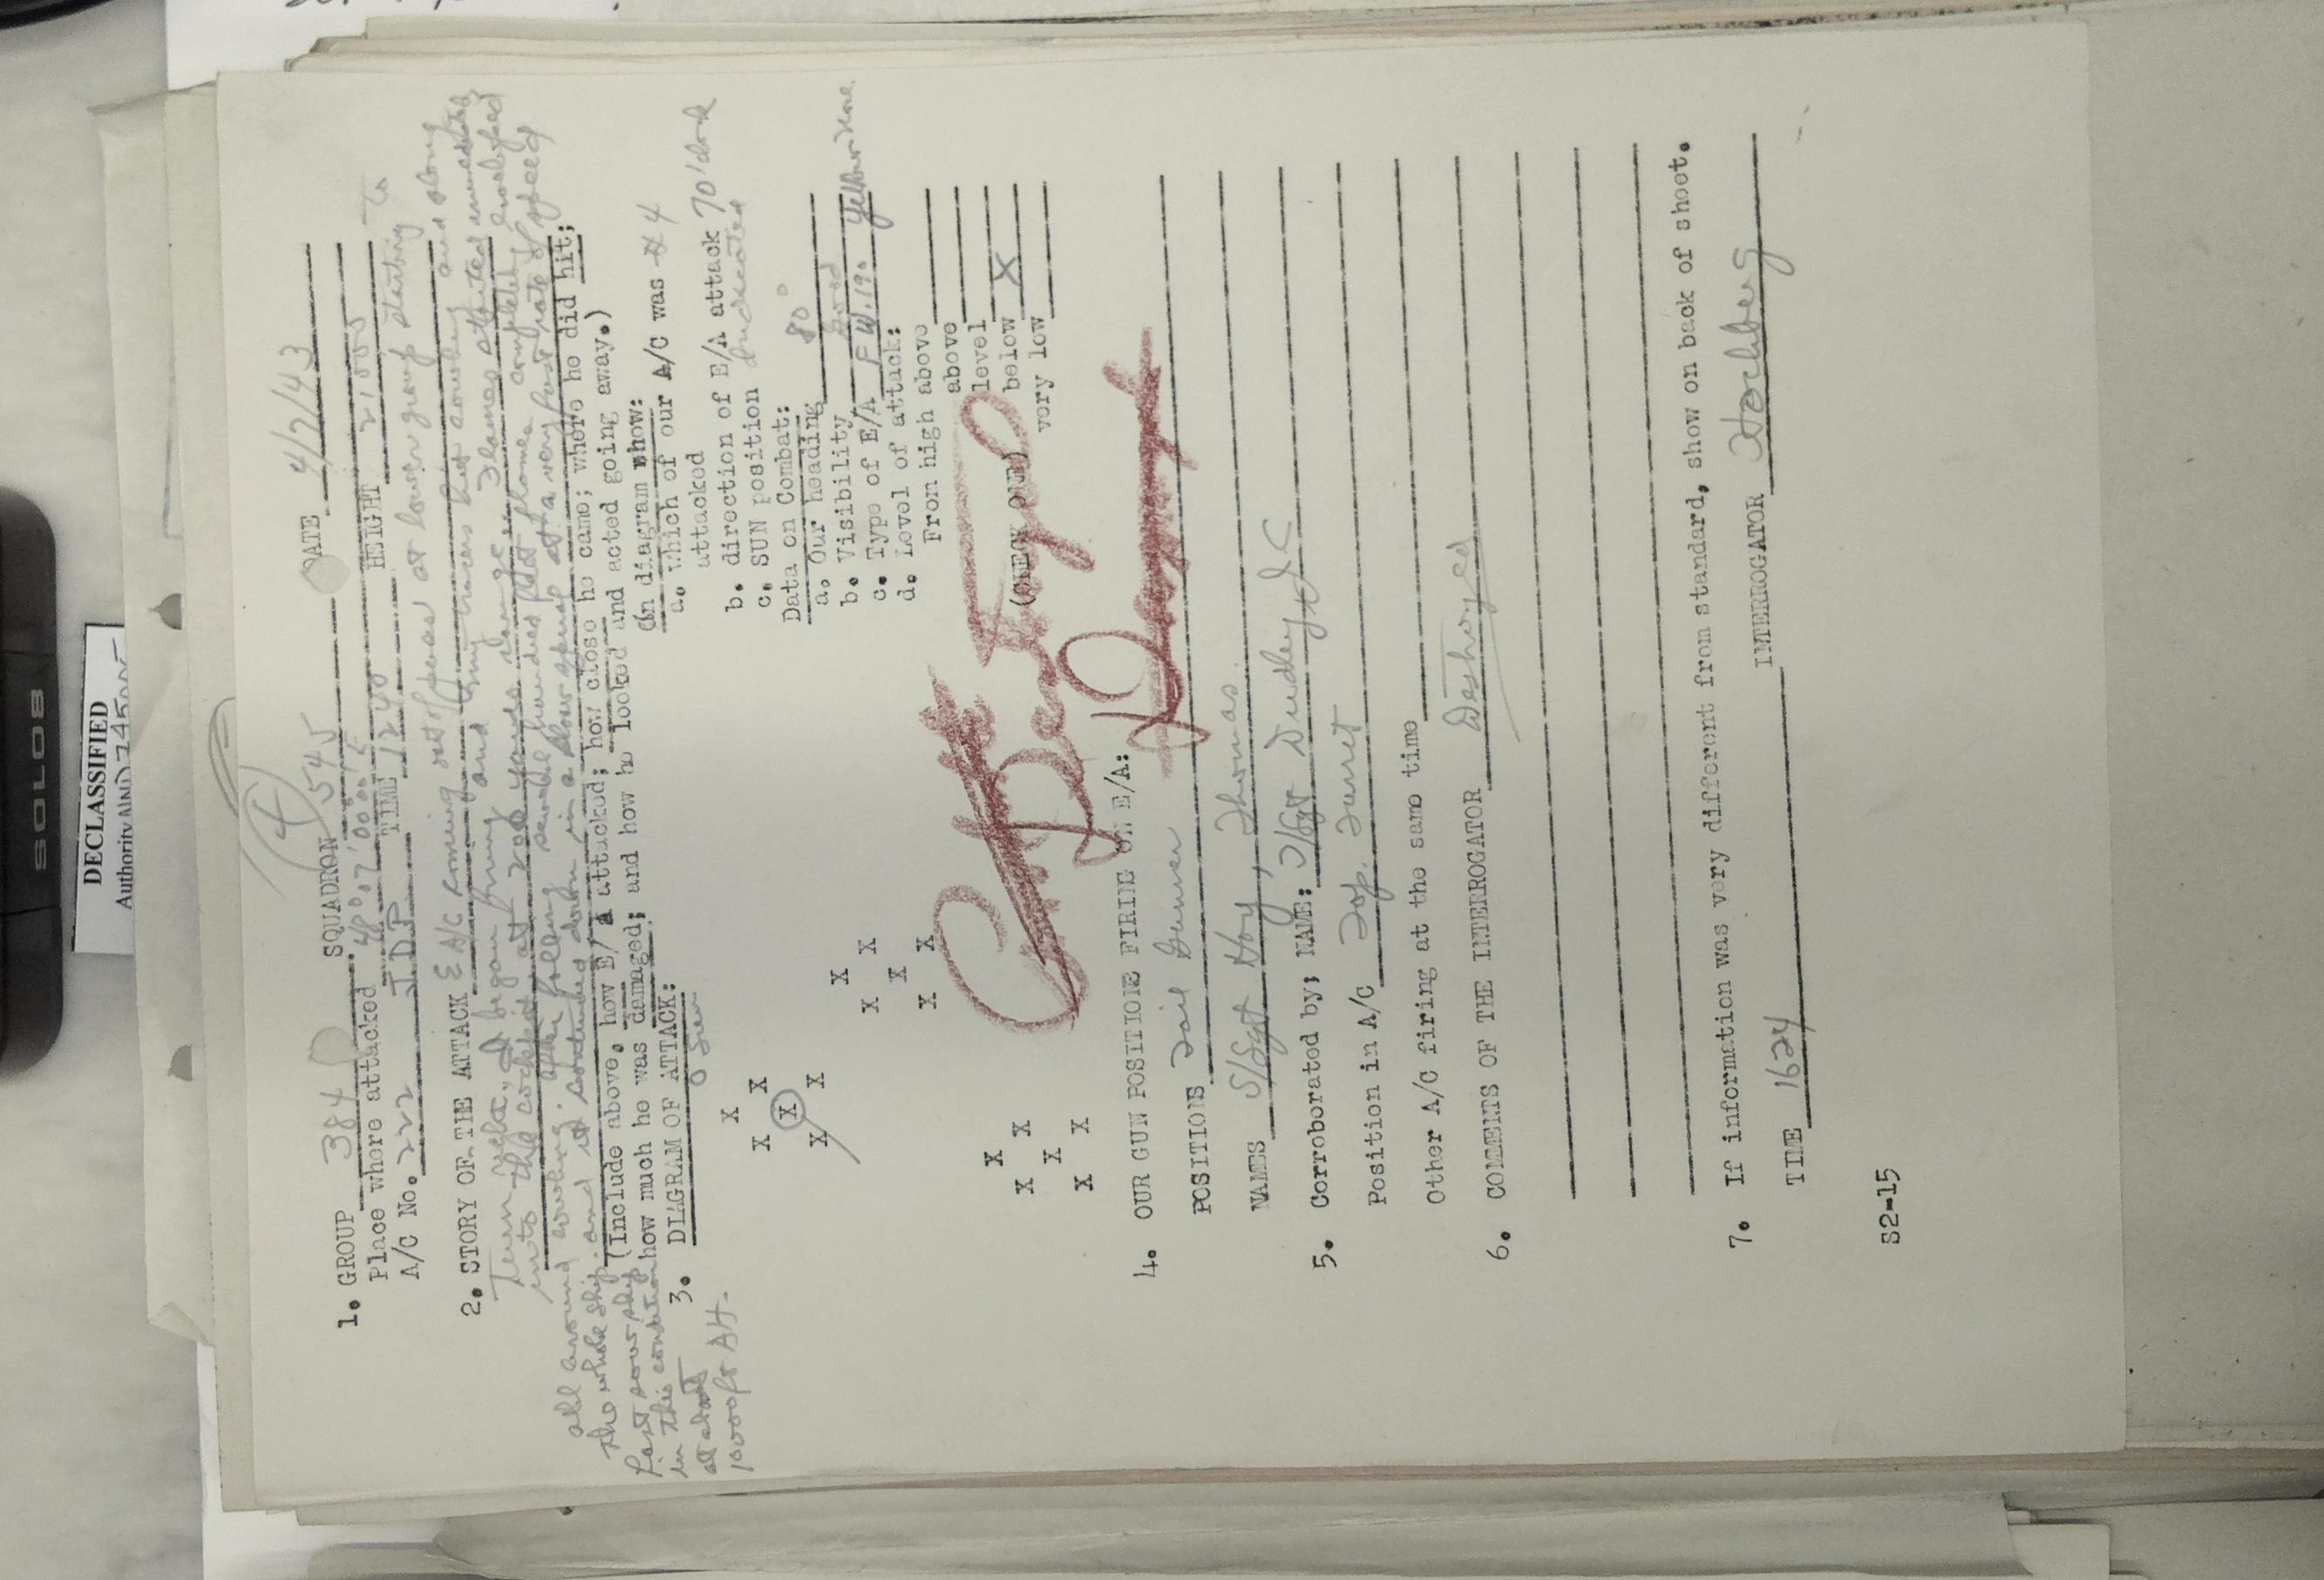 SOLO8
DECLASSIFIED
Authority NND 745005
4
1. GROUP 384 SQUADRON 545 DATE 4/2/43
Place where attacked TIME 1240 HEIGHT 21000
A/C No. 222 J.D.P.
2. STORY OF THE ATTACK E A/C coming out of pass at lower group starting to
Turn right. I began firing and my tracers hit cowling and along
into the cockpit at 200 yards range. Flames started immediately
all around cowling. after rolling several hundred feet flames completely enveloped
the whole ship and it continued down in a slow spiral at a very fast rate of speed
Last saw ship
in this condition
at about
10000 ft Alt.
(Include above, how E/A attacked; how close he came; where he did hit;
how much he was damaged; and how he looked and acted going away.)
3. DIAGRAM OF ATTACK:
O Sun
On diagram show:
a. which of our A/C was 4
attacked
b. direction of E/A attack 7 O'clock
c. SUN position indicated
Data on Combat:
a. Our heading 80°
b. Visibility Good
c. Type of E/A F.W.190 yellow nose
d. Level of attack:
From high above
above
level
(CHECK ONE) below X
very low
X X X X X X
X X X X X X
X X X X X X
4. OUR GUN POSITIONS FIRING ON E/A:
POSITIONS Tail Gunner
NAMES S/Sgt Hoy, Thomas
5. Corroborated by; NAME: T/Sgt Dudley
Position in A/C Top. Turret
Other A/C firing at the same time
6. COMMENTS OF THE INTERROGATOR Destroyed
7. If information was very different from standard, show on back of sheet.
TIME 1624 INTERROGATOR Hochberg
S2-15